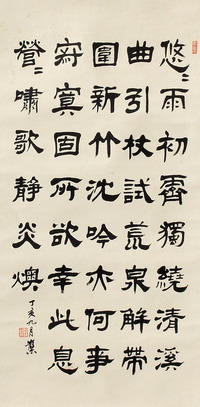 悠〻雨初霽獨繞清溪
曲引杖試荒泉解帶
圍新竹沈吟亦何事
寂寞固所欲幸此息
營〻嘯歌靜炎燠
丁亥九月